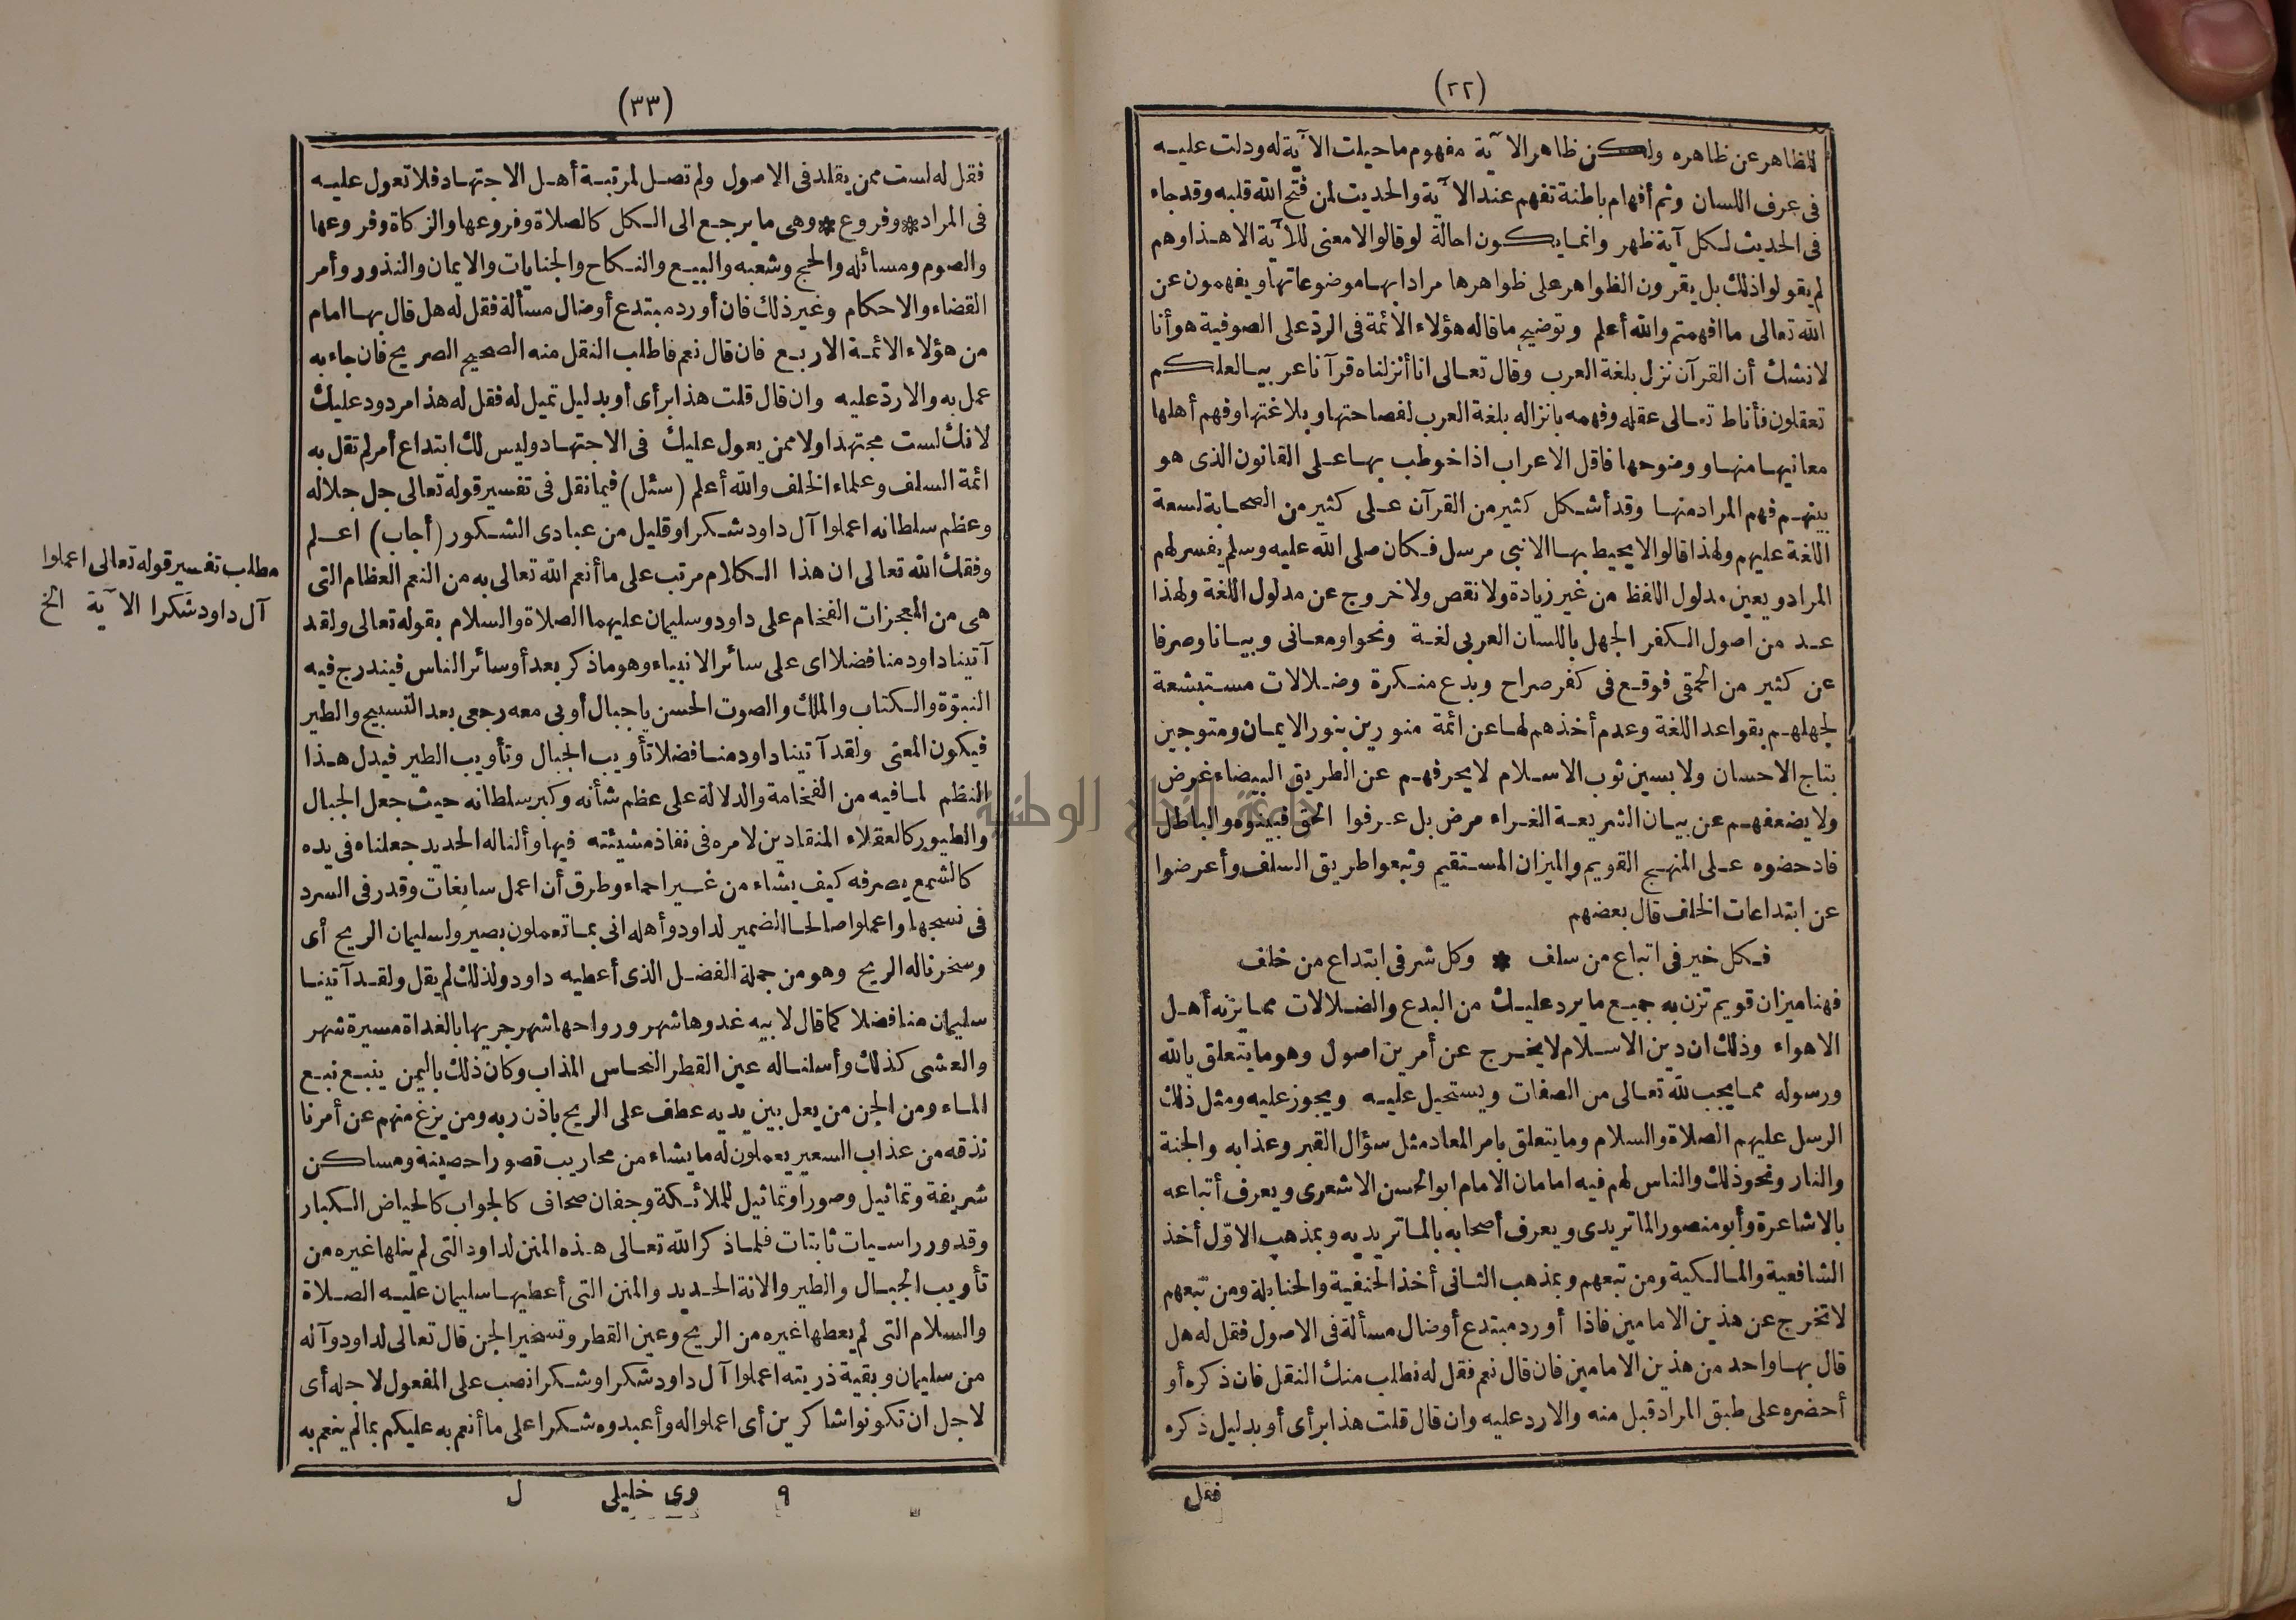 (٢٢)
للظاهر عن ظاهره ولكن ظاهر الآية مفهوم ما حيلت الآية له ودلت عليه
فى عرف اللسان وثم أفهام باطنة تفهم عند الآية والحديث لمن فتح الله قلبه وقد جاء
فى الحديث لكل آية ظهر وانما يكون احالة لو قالوا لا معنى للآية الا هذا وهم
لم يقولوا ذلك بل يقرون الظواهر على ظواهرها مرادا بها موضوعاتها ويفهمون عن
الله تعالى ما افهمتم والله أعلم وتوضيح ما قاله هؤلاء الائمة فى الردّ على الصوفية هو أنا
لا نشك أن القرآن نزل بلغة العرب وقال تعالى انا أنزلناه قرآنا عربيا لعلكم
تعقلون فأناط تعالى عقله وفهمه بانزاله بلغة العرب لفصاحتها وبلاغتها وفهم أهلها
معانيها منها ووضوحها فاقل الاعراب اذا خوطب بها على القانون الذى هو
بينهم فهم المراد منها وقد أشكل كثير من القرآن على كثير من الصحابة لسعة
اللغة عليهم ولهذا قالوا لا يحيط بها الا نبى مرسل فكان صلى الله عليه وسلم يفسر لهم
المراد ويعين مدلول اللفظ من غير زيادة ولا نقص ولا خروج عن مدلول اللغة ولهذا
عد من اصول الكفر الجهل باللسان العربى لغة ونحوا ومعانى وبيانا وصرفا
عن كثير من الحمقى فوقع فى كفر صراح وبدع منكرة وضلالات مستبشعة
لجهلهم بقواعد اللغة وعدم أخذهم لها عن ائمة منورين بنور الايمان ومتوجين
بتاج الاحسان ولابسين ثوب الاسلام لا يحرفهم عن الطريق البيضاء غرض
ولا يضعفهم عن بيان الشريعة الغراء مرض بل عرفوا الحق فبينوه والباطل
فادحضوه على المنهج القويم والميزان المستقيم وتبعوا طريق السلف وأعرضوا
عن ابتداعات الخلف قال بعضهم
فكل خير فى اتباع من سلف * وكل شر فى ابتداع من خلف
فهنا ميزان قويم تزن به جميع ما يرد عليك من البدع والضلالات مما يزنه أهل
الاهواء وذلك ان دين الاسلام لا يخرج عن أمرين اصول وهو ما يتعلق بالله
ورسوله مما يجب لله تعالى من الصفات ويستحيل عليه ويجوز عليه ومثل ذلك
الرسل عليهم الصلاة والسلام وما يتعلق بامر المعاد مثل سؤال القبر وعذابه والجنة
والنار ونحو ذلك والناس لهم فيه امامان الامام ابو الحسن الاشعرى ويعرف أتباعه
بالاشاعرة وأبو منصور الماتريدى ويعرف أصحابه بالماتريديه وبمذهب الاوّل أخذ
الشافعية والمالكية ومن تبعهم وبمذهب الثانى أخذ الحنفية والحنابلة ومن تبعهم
لا تخرج عن هذين الامامين فاذا أورد مبتدع أو ضال مسألة فى الاصول فقل له هل
قال بها واحد من هذين الامامين فان قال نعم فقل له نطلب منك النقل فان ذكره أو
أحضره على طبق المراد قبل منه والا رد عليه وان قال قلت هذا برأى أو بدليل ذكره
فقل
(٣٣)
فقل له لست ممن يقلد فى الاصول ولم تصل لمرتبة أهل الاجتهاد فلا تعول عليه
فى المراد * وفروع * وهى ما يرجع الى الكل كالصلاة وفروعها والزكاة وفروعها
والصوم ومسائله والحج وشعبه والبيع والنكاح والجنايات والايمان والنذور وأمر
القضاء والاحكام وغير ذلك فان أورد مبتدع أو ضال مسألة فقل له هل قال بها امام
من هؤلاء الائمة الاربع فان قال نعم فاطلب النقل منه الصحيح الصريح فان جاء به
عمل به والا ردّ عليه وان قال قلت هذا برأى أو بدليل تميل له فقل له هذا مردود عليك
لانك لست مجتهدا ولا ممن يعول عليك فى الاجتهاد وليس لك ابتداع أمر لم تقل به
ائمة السلف وعلماء الخلف والله أعلم (سئل) فيما نقل فى تفسير قوله تعالى جل جلاله
وعظم سلطانه اعملوا آل داود شكرا وقليل من عبادى الشكور (أجاب) اعلم
وفقك الله تعالى ان هذا الكلام مرتب على ما أنعم الله تعالى به من النعم العظام التى
هى من المعجزات الفخام على داود وسليمان عليهما الصلاة والسلام بقوله تعالى ولقد
آتينا داود منا فضلا اى على سائر الانبياء وهو ما ذكر بعد أو سائر الناس فيندرج فيه
النبوّة والكتاب والملك والصوت الحسن يا جبال أوبى معه رجعى بعد التسبيح والطير
فيكون المعنى ولقد آتينا داود منا فضلا تأويب الجبال وتأويب الطير فيدل هذا
النظم لما فيه من الفخامة والدلالة على عظم شأنه وكبر سلطانه حيث جعل الجبال
والطيور كالعقلاء المنقادين لامره فى نفاذ مشيئته فيها وألنا له الحديد جعلناه فى يده
كالشمع يصرفه كيف يشاء من غير احماء وطرق أن اعمل سابغات وقدر فى السرد
فى نسجها واعملوا صالحا الضمير لداود وأهله انى بما تعملون بصير ولسليمان الريح أى
وسخرنا له الريح وهو من جملة الفضل الذى أعطيه داود ولذلك لم يقل ولقد آتينا
سليمان منا فضلا كما قال لابيه غدوها شهر ورواحها شهر جريها بالغداة مسيرة شهر
والعشى كذلك وأسلنا له عين القطر النحاس المذاب وكان ذلك باليمن ينبع نبع
الماء ومن الجن من يعمل بين يديه عطف على الريح باذن ربه ومن يزغ منهم عن أمرنا
نذقه من عذاب السعير يعملون له ما يشاء من محاريب قصورا حصينة ومساكن
شريفة وتماثيل وصورا وتماثيل للملائكة وجفان صحاف كالجواب كالحياض الكبار
وقدور راسيات ثابتات فلما ذكر الله تعالى هذه المنن لداود التى لم ينلها غيره من
تأويب الجبال والطير والانة الحديد والمنن التى أعطيها سليمان عليه الصلاة
والسلام التى لم يعطها غيره من الريح وعين القطر وتسخير الجن قال تعالى لداود وآله
من سليمان وبقية ذريته اعملوا آل داود شكرا وشكرا نصب على المفعول لاجله أى
لاجل ان تكونوا شاكرين أى اعملوا له وأعبدوه شكرا على ما أنعم به عليكم بما لم ينعم به
٩ وى خليلى ل
مطلب تفسير قوله تعالى اعملوا
آل داود شكرا الآية الخ
جامعة النجاح الوطنية